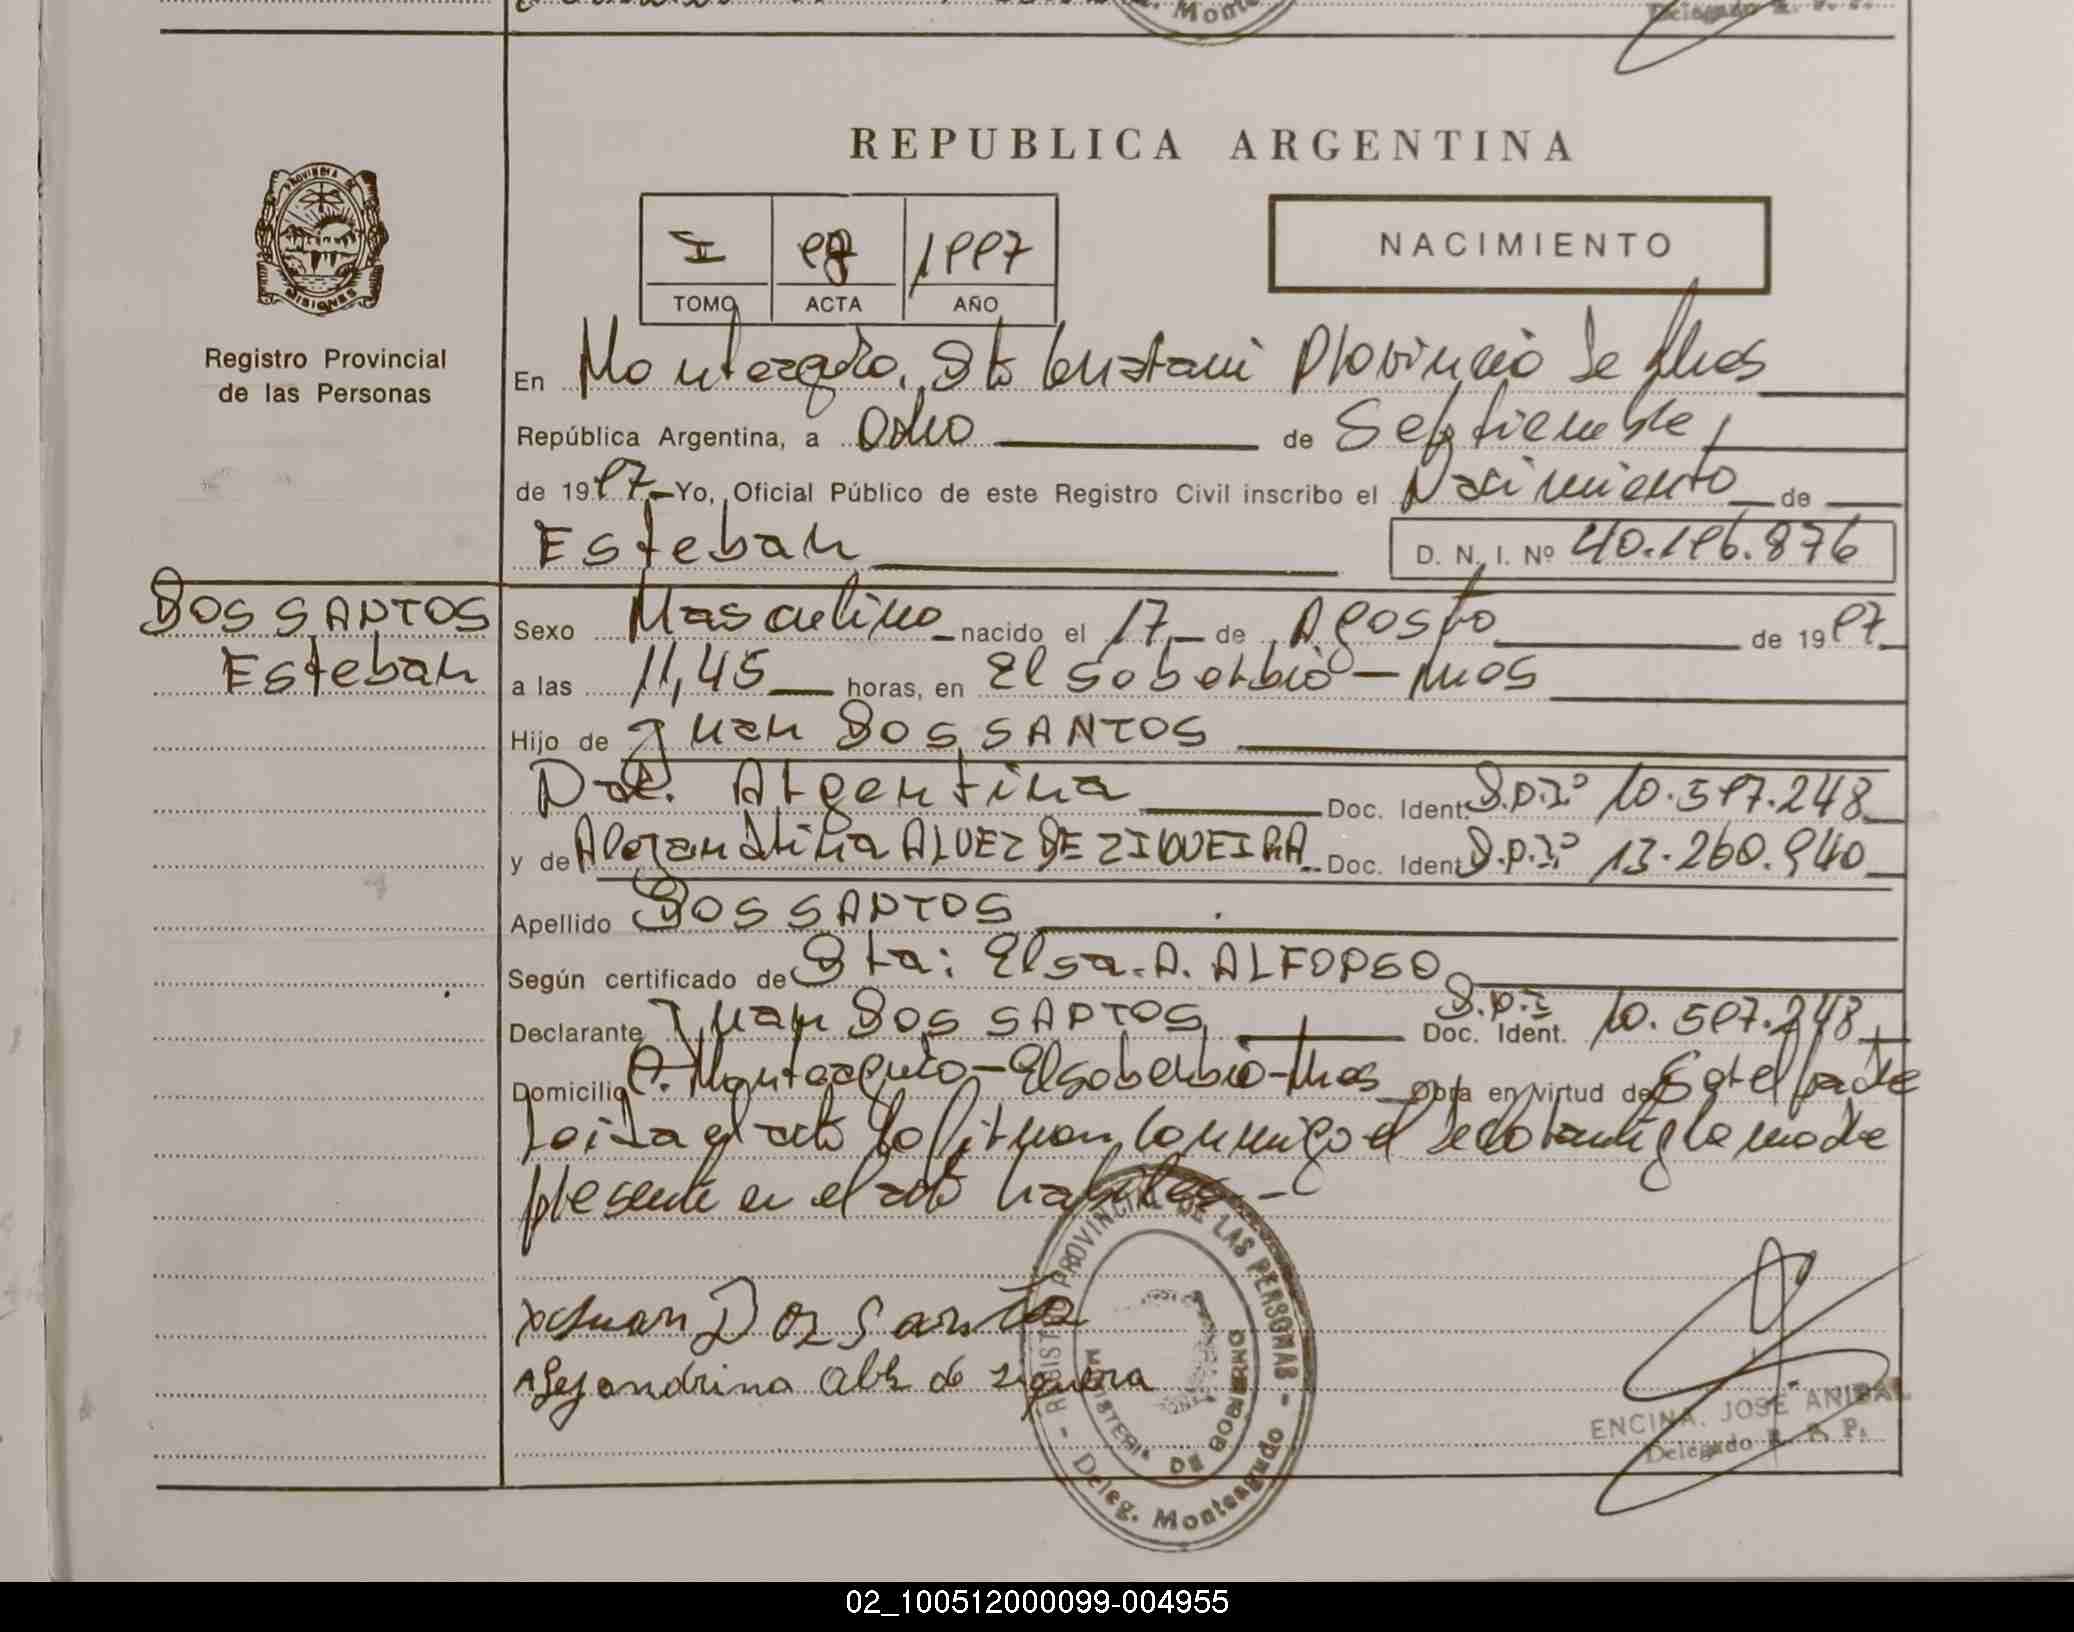 REPUBLICA ARGENTINA
PROVINCIA DE
MISIONES
Registro Provincial
de las Personas
I 98 1997
TOMO ACTA AÑO
NACIMIENTO
En Monteagudo, Dto Guaraní Provincia de Mnes
República Argentina, a Ocho de Septiembre
de 1997 Yo, Oficial Público de este Registro Civil inscribo el Nacimiento de
Esteban D. N. I. Nº 40.196.876
DOS SANTOS
Esteban
Sexo Masculino nacido el 17 de Agosto de 1997
a las 11,45 horas, en El Soberbio - Mnes
Hijo de Juan DOS SANTOS
Nac. Argentina Doc. Ident. D.N.Iº 10.597.248
y de Alejandrina ALVEZ DE ZIQUEIRA Doc. Ident. D.N.Iº 13.260.940
Apellido DOS SANTOS
Según certificado de Dta: Elsa. A. ALFONSO
Declarante Juan DOS SANTOS Doc. Ident. D.N.I 10.597.248
Domicilio C. Monteagudo - El Soberbio - Mnes Obra en virtud de Ser el padre
Leída el acta la firman conmigo el declarante y la madre
presente en el acto
x Juan Dos Santos
Alejandrina de
REGISTRO PROVINCIAL DE LAS PERSONAS
MINISTERIO DE GOBIERNO
Deleg. Monteagudo
ENCINA, JOSE ANIBAL
Delegado R. P. P.
02_100512000099-004955